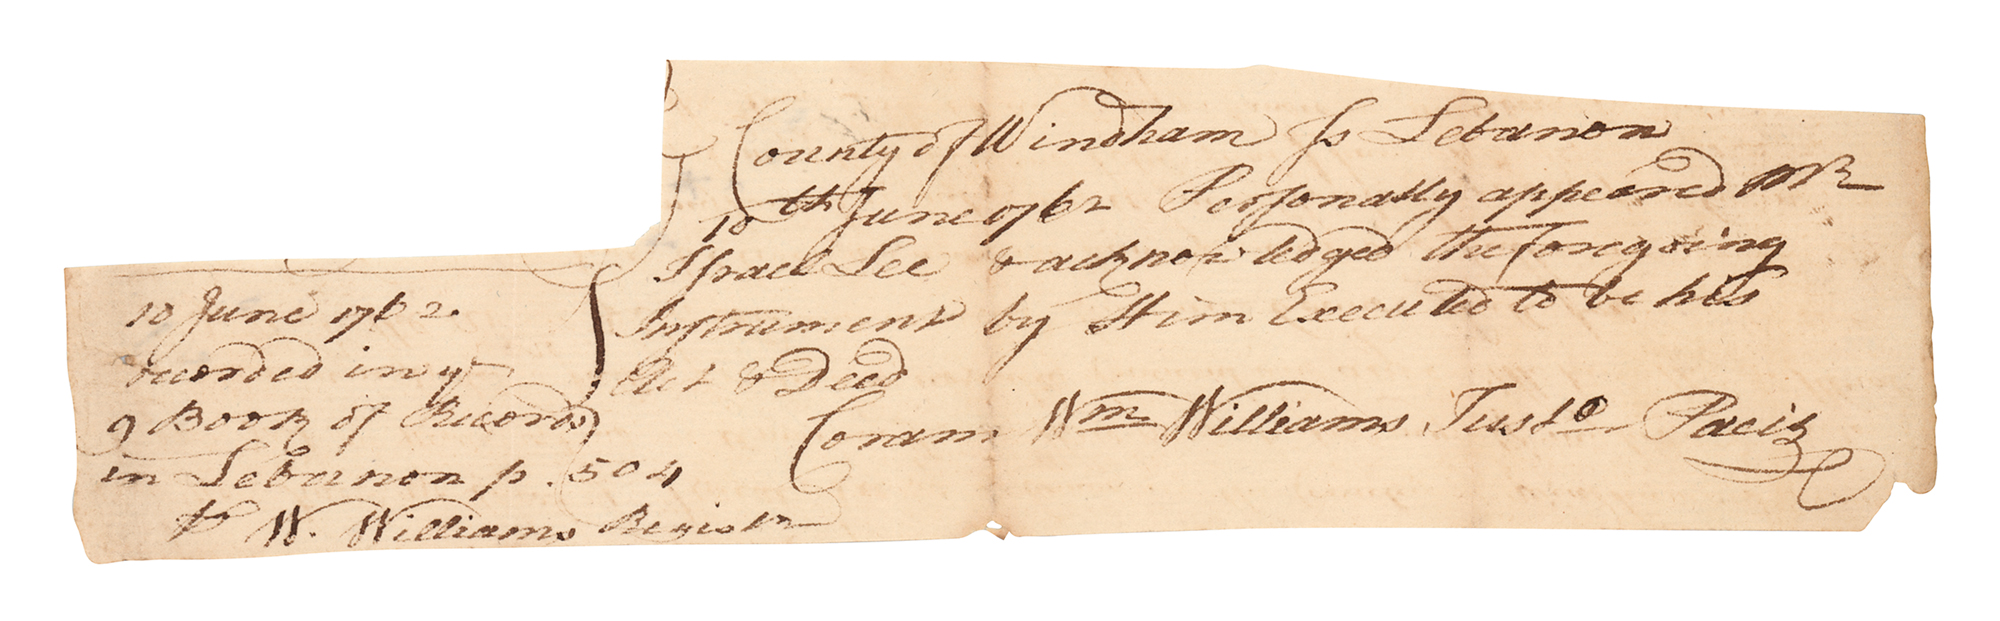 County of Windham Ss Lebanon
10th June 1762 Personally appeared Mr
Israel Lee & acknowledged the foregoing
Instrument by Him Executed to be his
Act & Deed
Coram Wm Williams Justo Pacis
10 June 1762
recorded in ye
9 Book of Records
in Lebanon p. 504
pr W. Williams Registr